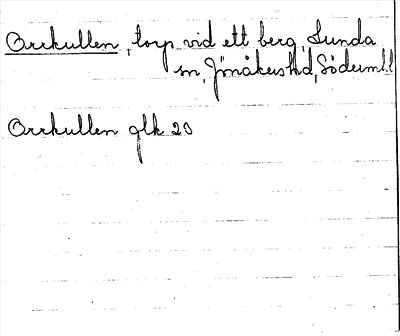 Orrkullen, torp vid ett berg, Lunda
sn, Jönåkers hd, Söderml.
Orrkullen glk 20